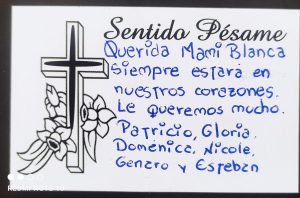 Sentido Pésame
Querida Mami Blanca
Siempre estará en
nuestros corazones.
Le queremos mucho.
Patricio, Gloria,
Doménica, Nicole,
Genaro y Esteban